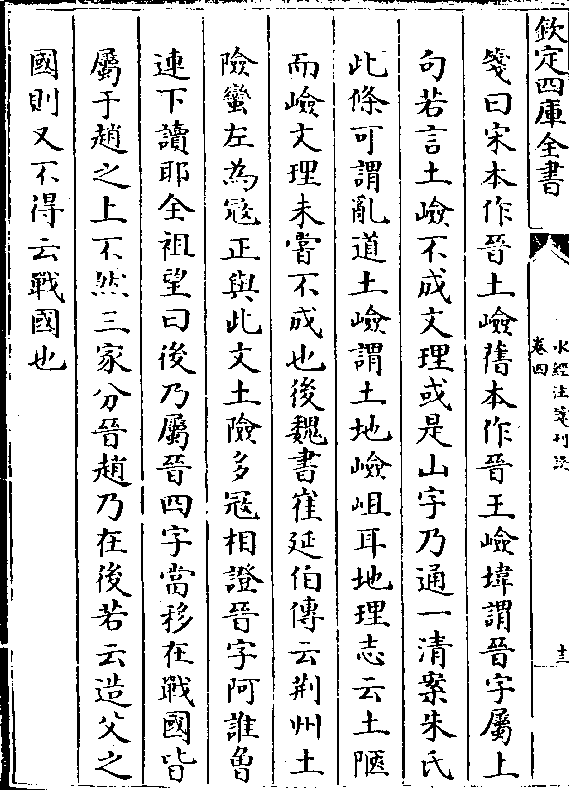 欽定四庫全書
水經注箋刊誤
卷四
十三
箋曰宋本作晉土嶮舊本作晉王嶮㙔謂晉字屬上
句若言土嶮不成文理或是山字乃通一清案朱氏
此條可謂亂道土嶮謂土地嶮岨耳地理志云土陿
而嶮文理未嘗不成也後魏書崔延伯傳云荆州土
險蠻左為寇正與此文土險多寇相證晉字阿誰魯
連下讀耶全祖望曰後乃屬晉四字當移在戰國皆
屬于趙之上不然三家分晉趙乃在後若云造父之
國則又不得云戰國也